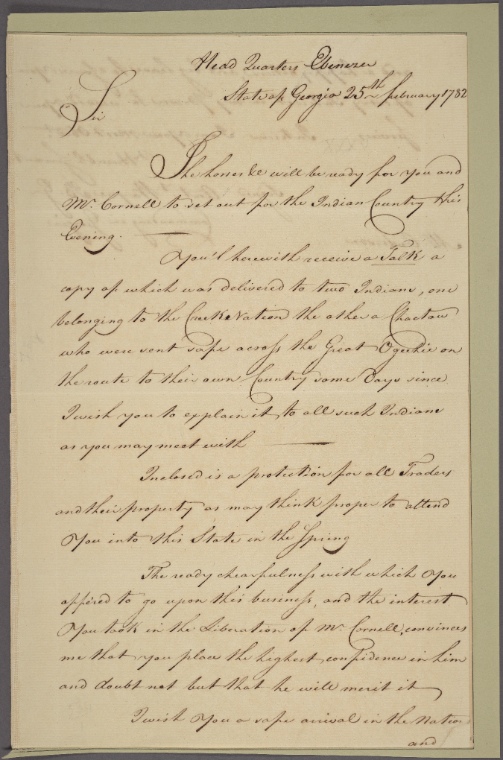 Head Quarters Ebenezer
State of Georgia 25th february 1782
Sir
The horses &c will be ready for you and
Mr. Cornell to set out for the Indian Country this
Evening.
You'l herewith receive a Talk a
copy of which was delivered to two Indians, one
belonging to the Creek Nation the other a Choctaw
who were sent safe across the Great Ogechie on
the route to their own Country some Days since
I wish you to explain it to all such Indians
as you may meet with
Inclosed is a protection for all Traders
and their property as may think proper to attend
You into this State in the Spring
The ready chearfulness with which You
offered to go upon this business, and the interest
You took in the Liberation of Mr. Cornell, convinces
me that you place the highest confidence in him
and doubt not but that he will merit it
I wish You a safe arrival in the Nation
and